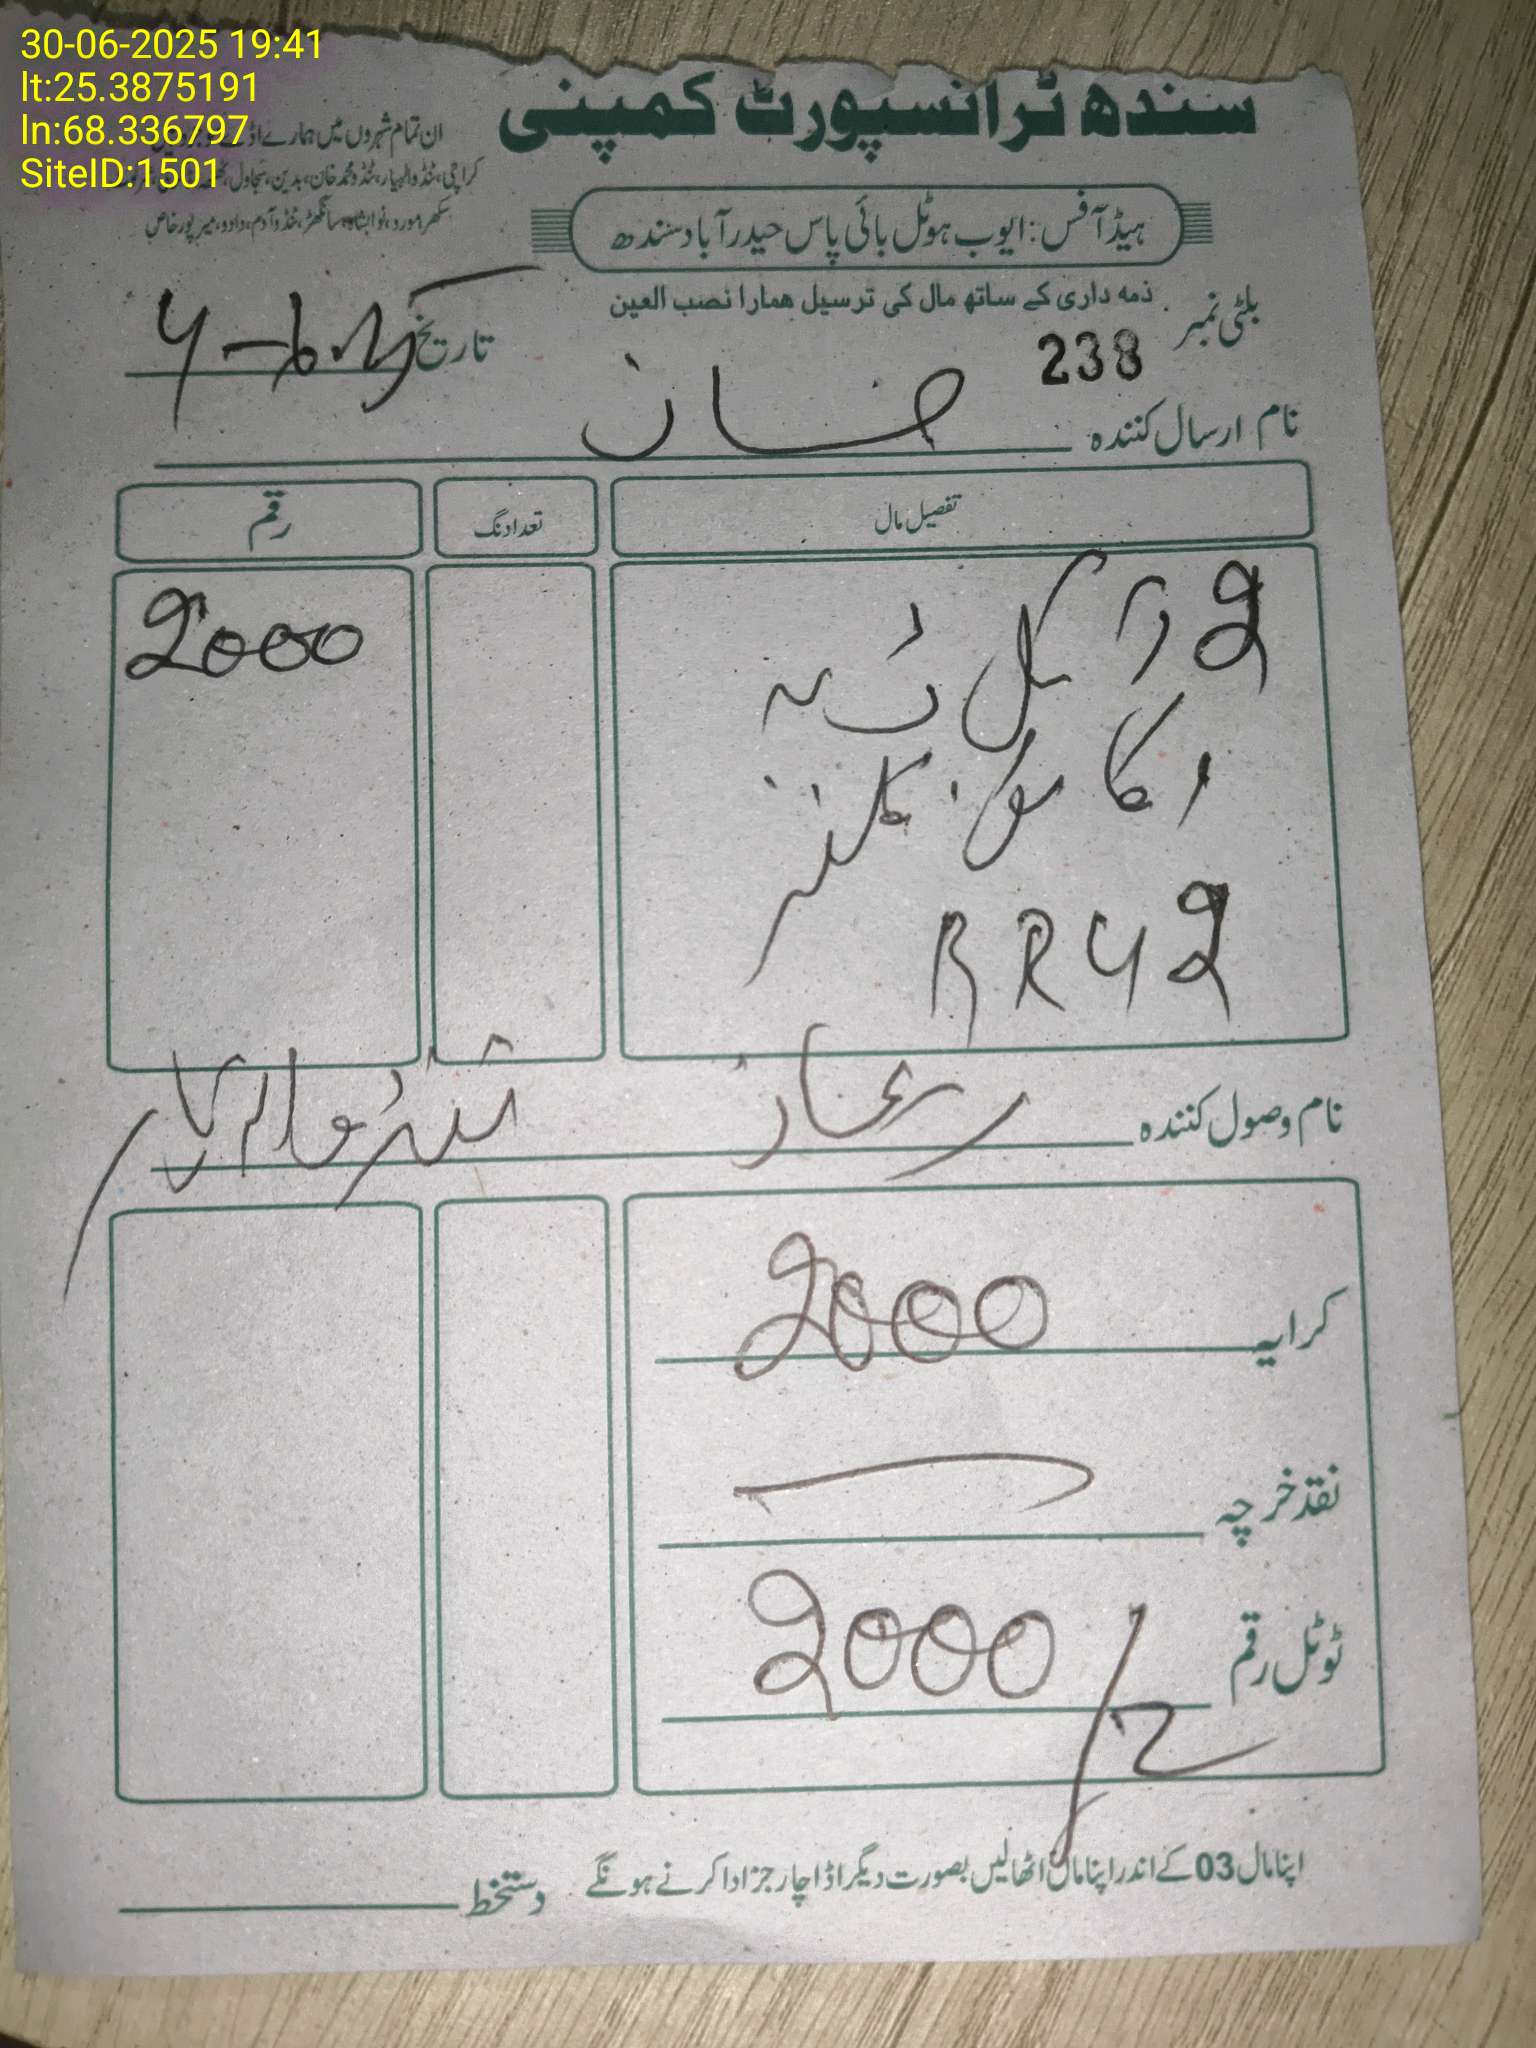 30-06-2025 19:41
lt:25.3875191
ln:68.336797
SiteID:1501
سندھ ٹرانسپورٹ کمپنی
ان تمام شہروں میں ہمارے اڈے
کراچی، ٹنڈوالہیار، ٹنڈو محمد خان، بدین، سجاول،
سکھر، مورو، نوابشاہ، سانگھڑ، ٹنڈو آدم، دادو، میرپورخاص
ہیڈ آفس: ایوب ہوٹل بائی پاس حیدرآباد سندھ
ذمہ داری کے ساتھ مال کی ترسیل ہمارا نصب العین
بلٹی نمبر 238
تاریخ
نام ارسال کنندہ
تفصیل مال تعداد نگ رقم
2 2000
RR42
نام وصول کنندہ ریحان ٹنڈوالہیار
کرایہ 2000
نقد خرچہ
ٹوٹل رقم 2000/
اپنا مال 03 کے اندر اپنا مال اٹھالیں بصورت دیگر اڈا چارجز ادا کرنے ہونگے دستخط